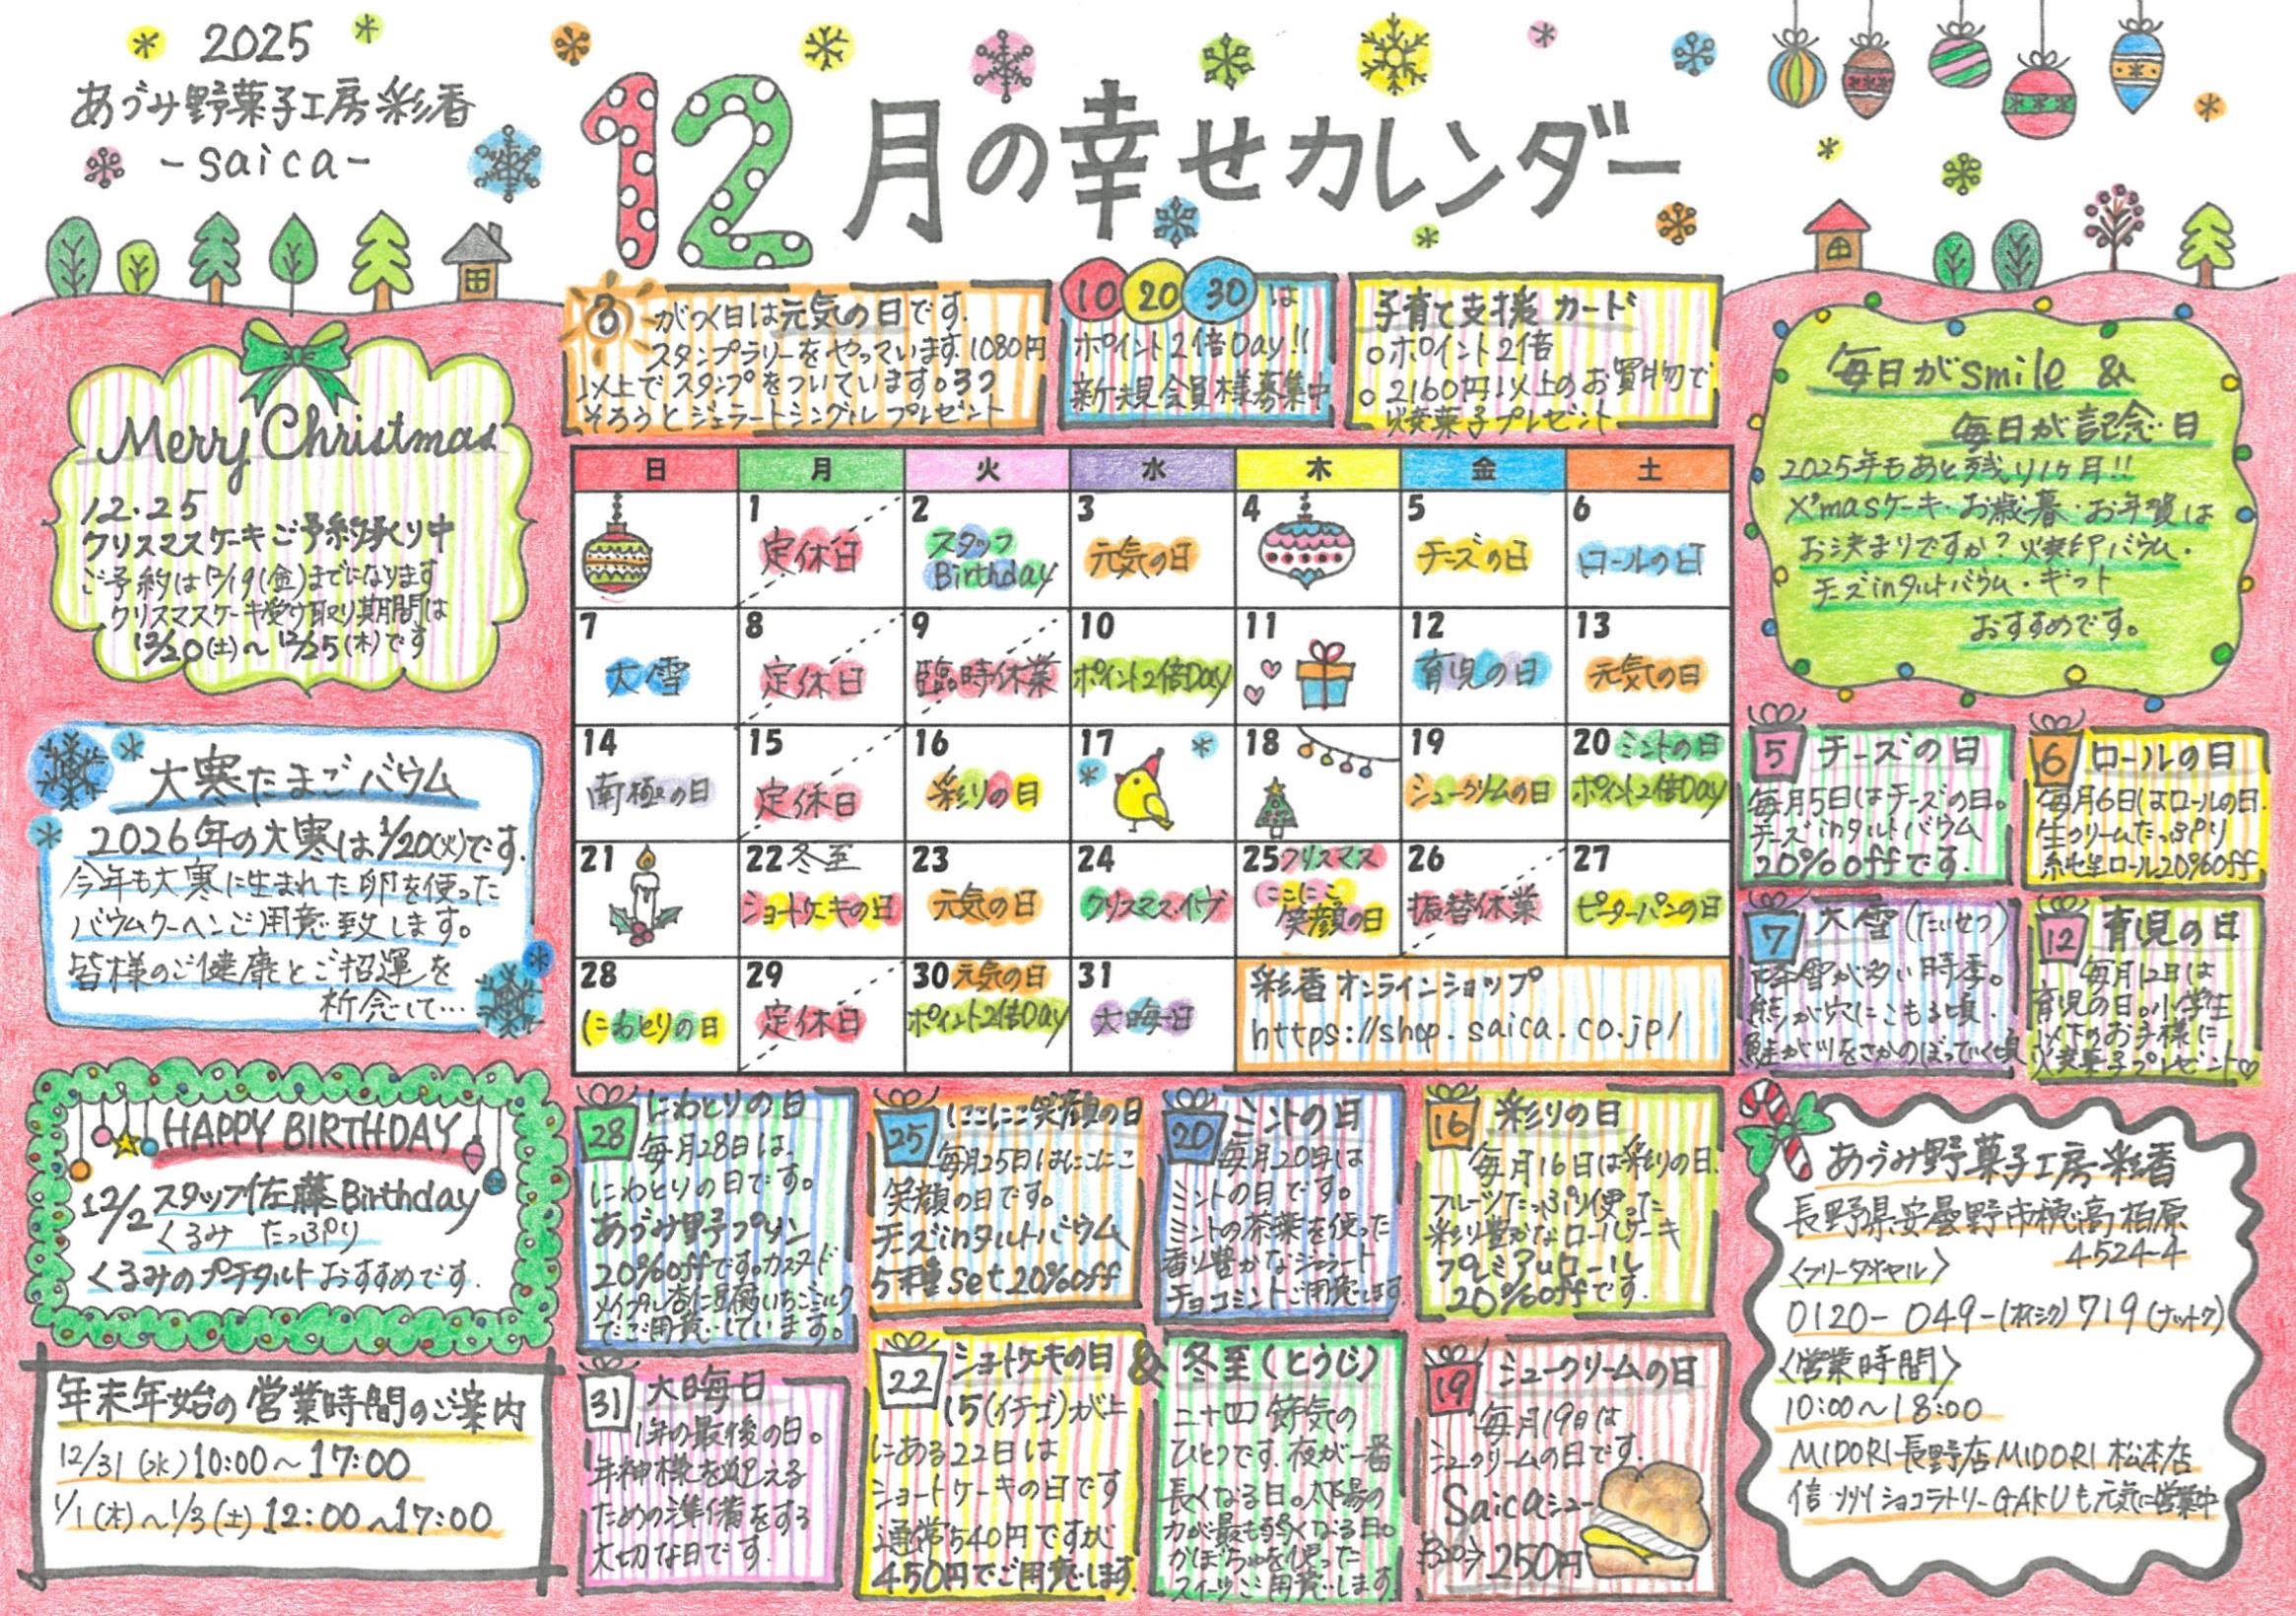 2025
あづみ野菓子工房彩香
-saica-
12月の幸せカレンダー
3がつく日は元気の日です。
スタンプラリーをやっています。1080円
以上でスタンプをついています。3つ
そろうとジェラートシングルプレゼント
10 20 30 は
ポイント2倍Day!!
新規会員様募集中
子育て支援カード
○ポイント2倍
○2160円以上のお買物で
焼菓子プレゼント
Merry Christmas
12.25
クリスマスケーキご予約承り中
ご予約は12/19(金)までになります
クリスマスケーキ受け取り期間は
12/20(土)〜12/25(木)です
毎日がsmile &
毎日が記念日
2025年もあと残り1ヶ月!!
X'masケーキ・お歳暮・お年賀は
お決まりですか?焼印バウム・
チーズinタルトバウム・ギフト
おすすめです。
大寒たまごバウム
2026年の大寒は1/20(火)です。
今年も大寒に生まれた卵を使った
バウムクーヘンご用意致します。
皆様のご健康とご招運を
祈念して…
HAPPY BIRTHDAY
12/2 スタッフ佐藤Birthday
くるみ たっぷり
くるみのプチタルトおすすめです。
年末年始の営業時間のご案内
12/31(水)10:00〜17:00
1/1(木)〜1/3(土)12:00〜17:00
日 月 火 水 木 金 土
1 定休日
2 スタッフ
Birthday
3 元気の日
4
5 チーズの日
6 ロールの日
7 大雪
8 定休日
9 臨時休業
10 ポイント2倍Day
11
12 育児の日
13 元気の日
14 南極の日
15 定休日
16 彩りの日
17
18
19 シュークリームの日
20 ミントの日
ポイント2倍Day
21
22 冬至
ショートケーキの日
23 元気の日
24 クリスマス・イヴ
25 クリスマス
にこにこ
笑顔の日
26 振替休業
27 ピーターパンの日
28 にわとりの日
29 定休日
30 元気の日
ポイント2倍Day
31 大晦日
彩香オンラインショップ
https://shop.saica.co.jp/
5 チーズの日
毎月5日はチーズの日。
チーズinタルトバウム
20%offです。
6 ロールの日
毎月6日はロールの日。
生クリームたっぷり
純生ロール20%off
7 大雪(たいせつ)
降雪が多い時季。
熊が穴にこもる頃。
鮭が川をさかのぼっていく頃
12 育児の日
毎月12日は
育児の日。小学生
以下のお子様に
焼菓子プレゼント♡
28 にわとりの日
毎月28日は、
にわとりの日です。
あづみ野プリン
20%offです。カスタード
メイプル杏仁豆腐いちごミルク
でご用意しています。
25 にこにこ笑顔の日
毎月25日はにこにこ
笑顔の日です。
チーズinタルトバウム
5種set20%off
20 ミントの日
毎月20日は
ミントの日です。
ミントの茶葉を使った
香り豊かなジェラート
チョコミントご用意します。
16 彩りの日
毎月16日は彩りの日。
フルーツたっぷり使った
彩り豊かなロールケーキ
プレミアムロール
20%offです。
31 大晦日
1年の最後の日。
年神様を迎える
ための準備をする
大切な日です。
22 ショートケーキの日 &
15(イチゴ)が上
にある22日は
ショートケーキの日です
通常540円ですが
450円でご用意します。
冬至(とうじ)
二十四節気の
ひとつです。夜が一番
長くなる日。太陽の
力が最も弱くなる日。
かぼちゃを使った
スイーツご用意します。
19 シュークリームの日
毎月19日は
シュークリームの日です。
Saicaシュー
250円
あづみ野菓子工房彩香
長野県安曇野市穂高柏原
4524-4
〈フリーダイヤル〉
0120-049-(オイシク)719(ナットク)
〈営業時間〉
10:00〜18:00
MIDORI長野店MIDORI松本店
信州ショコラトリーGAKUも元気に営業中